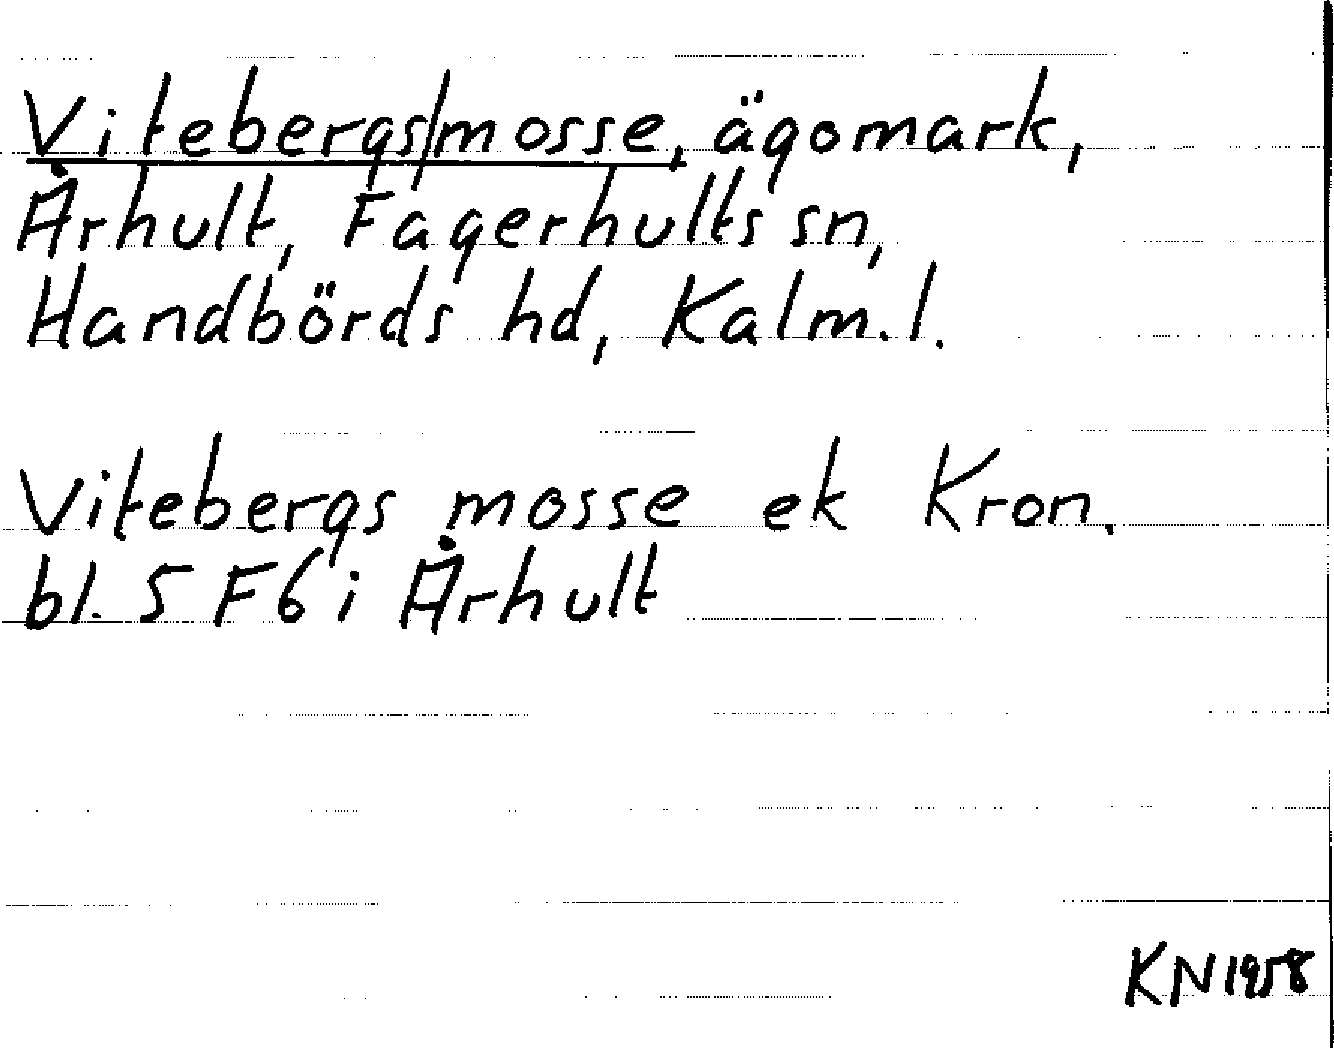 Vitebergs/mosse, ägomark,
Århult, Fagerhults sn,
Handbörds hd, Kalm. l.
Vitebergs mosse ek Kron.
bl. 5 F6 i Århult
KN 1958